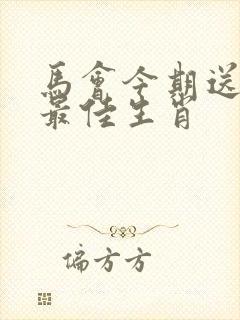 馬會今期送
最佳生肖
偏方方